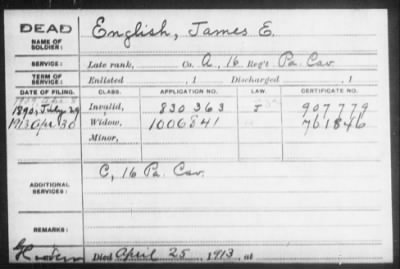 DEAD
English, James E.
NAME OF SOLDIER:
SERVICE: Late rank, Co. A, 16 Reg't Pa. Cav.
TERM OF SERVICE: Enlisted , 1 Discharged , 1
DATE OF FILING. CLASS. APPLICATION NO. LAW. CERTIFICATE NO.
1890, July 29 Invalid, 830363 J 907779
1913 Apr 30 Widow, 1006841 761846
Minor,
C, 16 Pa. Cav.
ADDITIONAL SERVICES:
REMARKS:
Died April 25, 1913, at